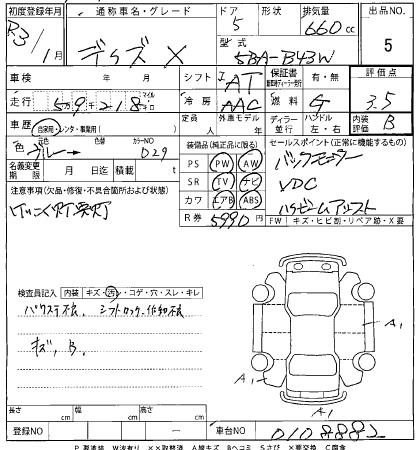 初度登録年月 通称車名・グレード ドア 形状 排気量 出品No.
R3/1月 デイズ X 5 660cc 5
型式 5BA-B43W
車検 年 月 日 シフト AT 保証書 有・無 評価点
走行 59,218 マイル 冷房 AAC 燃料 G 3.5
車歴 自家用・レンタ・事業用( ) 定員 人 外車モデル 年 ディーラー 並行 ハンドル 左・右 内装評価 B
色 元色 グレー 色替 カラーNO D29
装備品(純正品に限る) セールスポイント(正常に機能するもの)
PS PW AW バックモニター
名義変更期限 月 日迄 積載 t SR TV ナビ VDC
注意事項(欠品・修復・不具合箇所および状態) カワ エアB ABS ハイビームアシスト
R券 5990円
FW キズ・ヒビ割・リペア跡・X要
検査員記入 内装 キズ・汚レ・コゲ・穴・スレ・キレ
シフトロック 作動不良
キズ、B.
A1
A1
A1
長さ cm 幅 cm 高さ cm
登録NO ー 車台NO 0108882
P要塗装 W波有り XX取替済 A線キズ Bヘコミ Sさび X要交換 C腐食